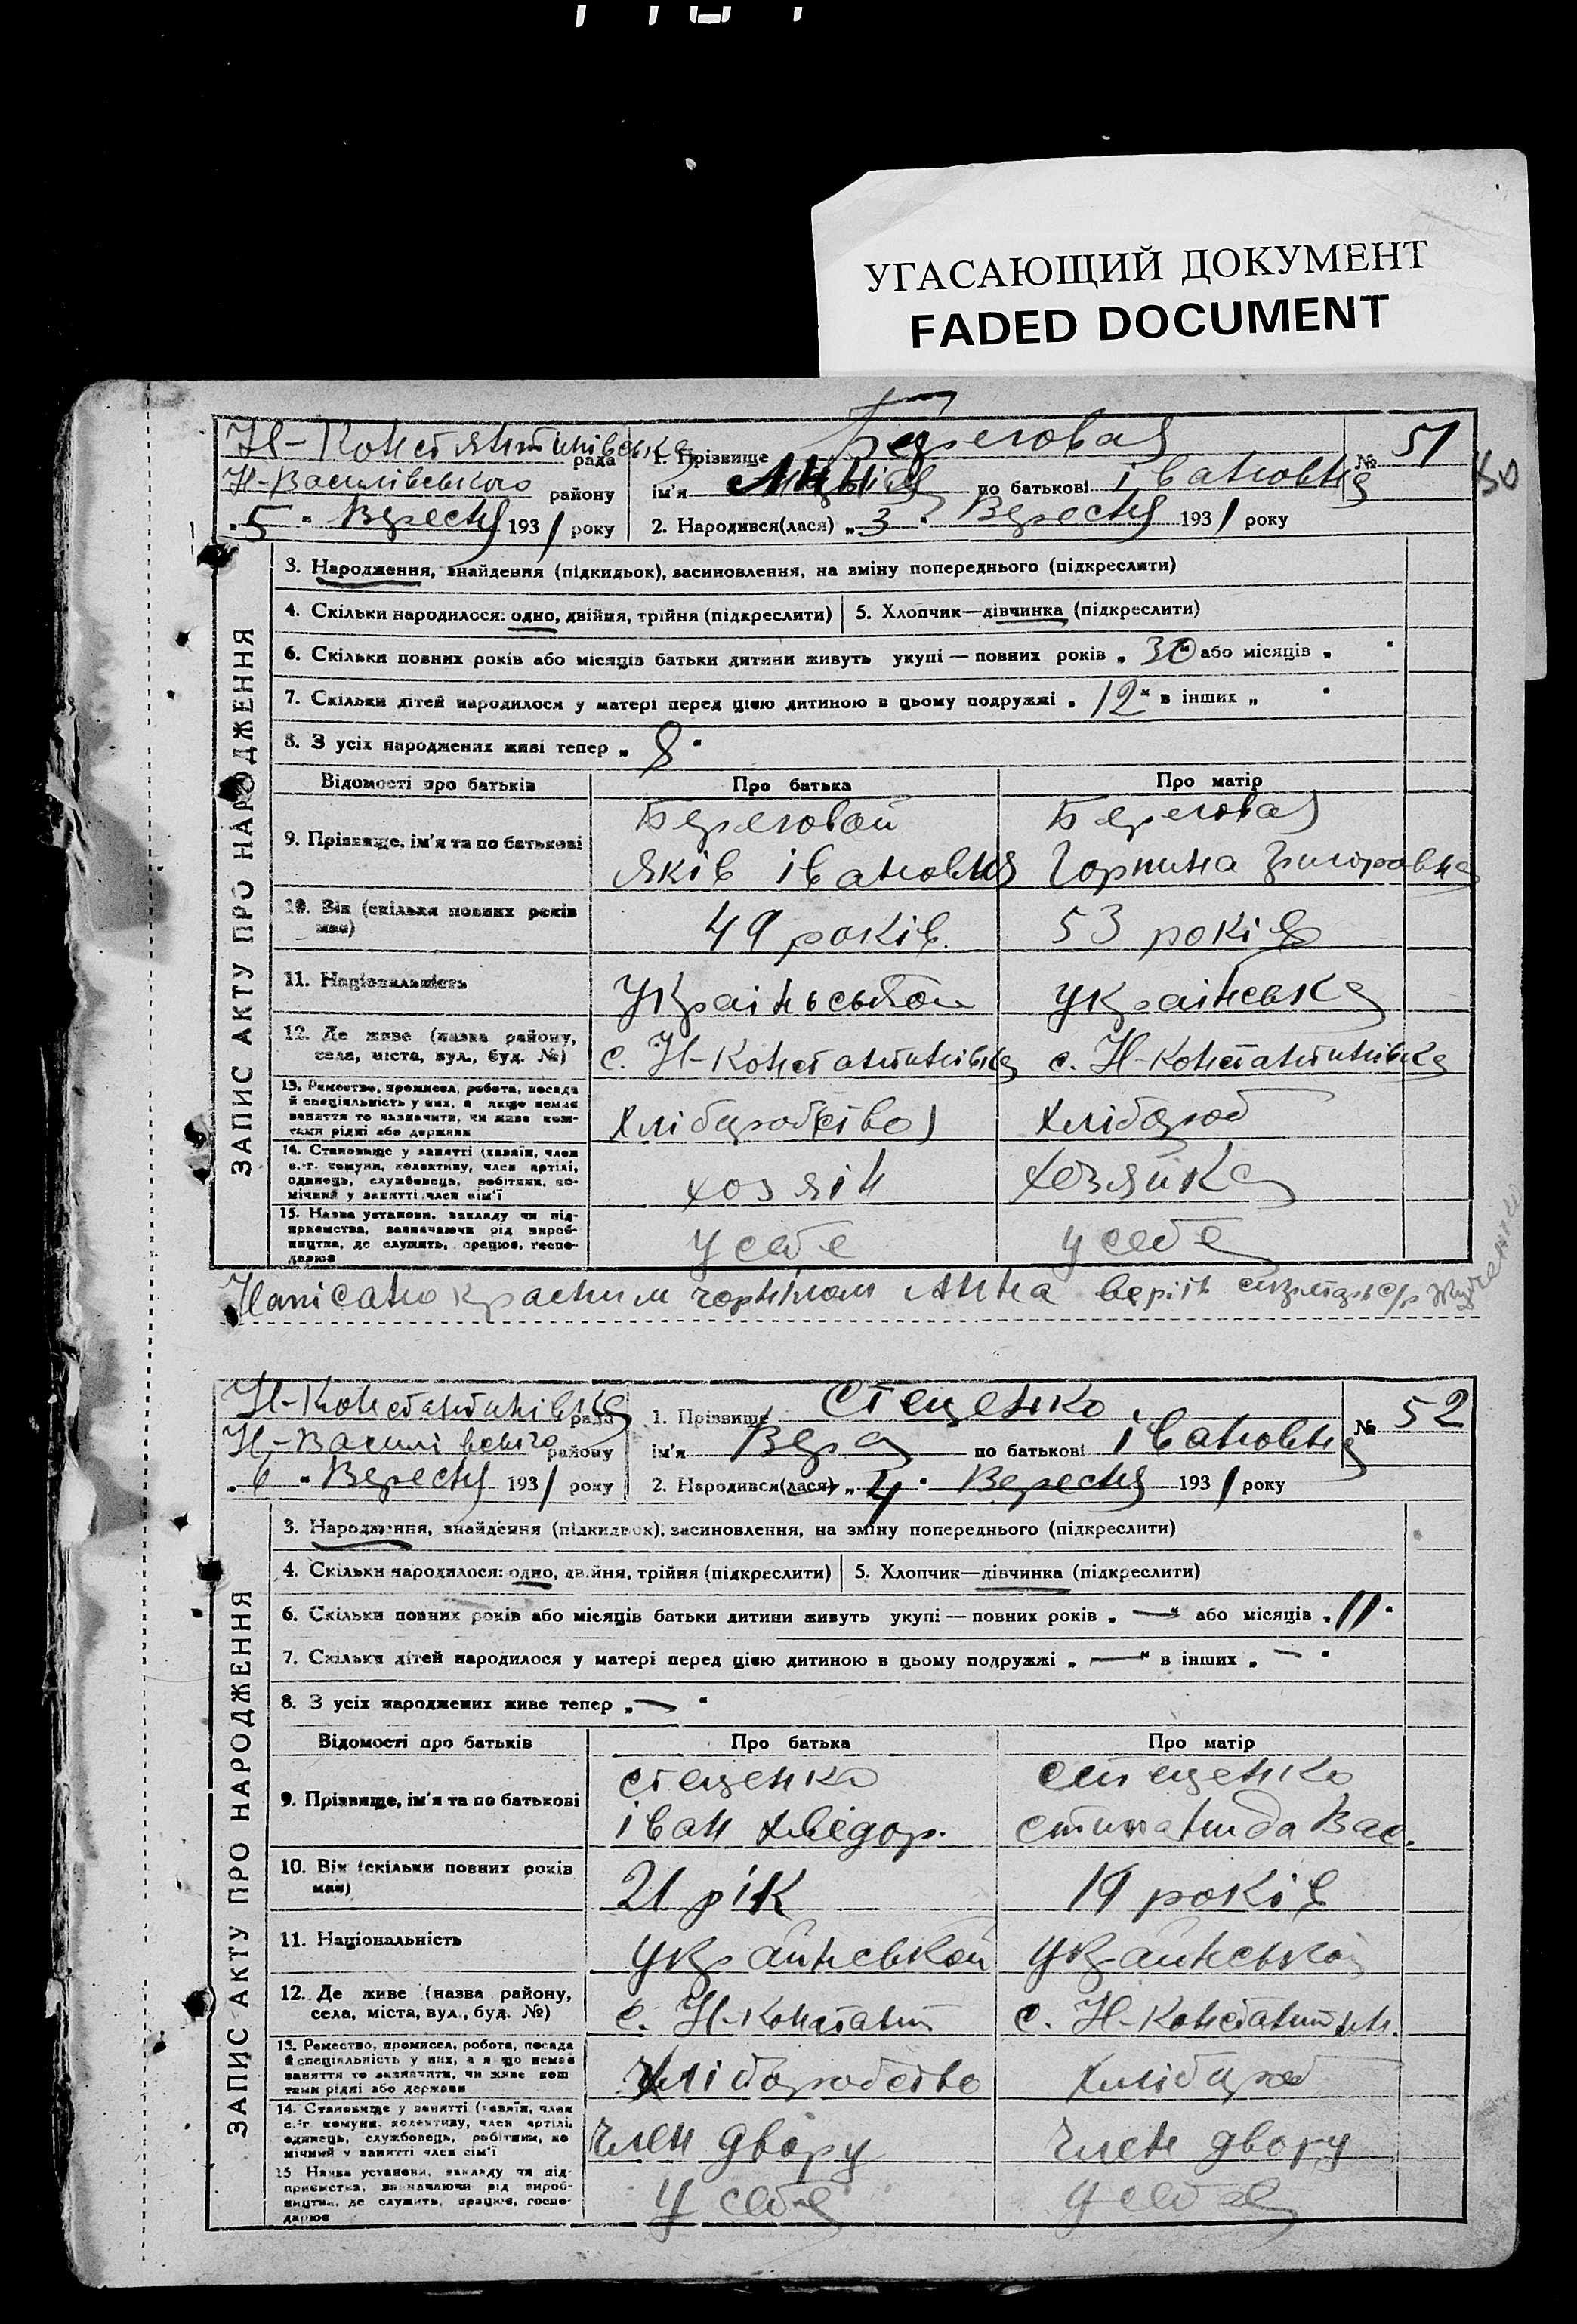 УГАСАЮЩИЙ ДОКУМЕНТ
FADED DOCUMENT
Н-Констянтинівська рада
Н-Василівського району
"5" Вересня 1931 року
1. Прізвище Береговая
ім'я Анна по батькові івановна
№ 51
50
2. Народився(лася) "3" Вересня 1931 року
ЗАПИС АКТУ ПРО НАРОДЖЕННЯ
3. Народження, знайдення (підкидьок), засиновлення, на зміну попереднього (підкреслити)
4. Скільки народилося: одно, двійня, трійня (підкреслити)
5. Хлопчик—дівчинка (підкреслити)
6. Скільки повних років або місяців батьки дитини живуть укупі — повних років „30" або місяців „ "
7. Скільки дітей народилося у матері перед цією дитиною в цьому подружжі „12" в інших „ "
8. З усіх народжених живі тепер „8"
Відомості про батьків
Про батька
Про матір
9. Прізвище, ім'я та по батькові
Береговой
Яків івановия
Береговая
Горпина Григоровна
10. Вік (скільки повних років має)
49 років
53 років
11. Національність
Українськой
українська
12. Де живе (назва району,
села, міста, вул., буд. №)
с. Н-Константинівка
с. Н-Константинівка
13. Ремество, промисел, робота, посада
й спеціяльність у них, а якщо немає
заняття то зазначити, чи живе кош-
тами рідні або держави
хліборобство
хлібороб
14. Становище у занятті (хазяїн, член
с.-г. комуни, колективу, член артілі,
одинець, службовець, робітник, по-
мічний у занятті член сім'ї
хозяін
хозяйка
15. Назва установи, закладу чи під-
приємства, зазначаючи рід вироб-
ництва, де служить, працює, госпо-
дарює
у себе
у себе
Напісано красним чорнілом Анна веріть
Н-Константинівка рада
Н-Василівського району
"6" Вересня 1931 року
1. Прізвище Стеценко
ім'я Вера по батькові івановна
№ 52
2. Народився(лася) "4" Вересня 1931 року
ЗАПИС АКТУ ПРО НАРОДЖЕННЯ
3. Народження, знайдення (підкидьок), засиновлення, на зміну попереднього (підкреслити)
4. Скільки народилося: одно, двійня, трійня (підкреслити)
5. Хлопчик—дівчинка (підкреслити)
6. Скільки повних років або місяців батьки дитини живуть укупі — повних років „—" або місяців „11"
7. Скільки дітей народилося у матері перед цією дитиною в цьому подружжі „—" в інших „—"
8. З усіх народжених живе тепер „—"
Відомості про батьків
Про батька
Про матір
9. Прізвище, ім'я та по батькові
Стеценко
іван Хведор.
Стеценко
Вас.
10. Вік (скільки повних років має)
21 рік
19 років
11. Національність
Украйнськой
Украйнській
12. Де живе (назва району,
села, міста, вул., буд. №)
с. Н-Констант
с. Н-Константин.
13. Ремество, промисел, робота, посада
й спеціяльність у них, а якщо немає
заняття то зазначити, чи живе кош
тами рідні або держави
хліборобство
хлібороб
14. Становище у занятті (хазяїн, член
с.-г. комуни, колективу, член артілі,
одинець, службовець, робітник, по
мічний у занятті член сім'ї
член двору
член двору
15 Назва установи, закладу чи під-
приємства, зазначаючи рід вироб-
ництва, де служить, працює, госпо-
дарює
у себе
у себе